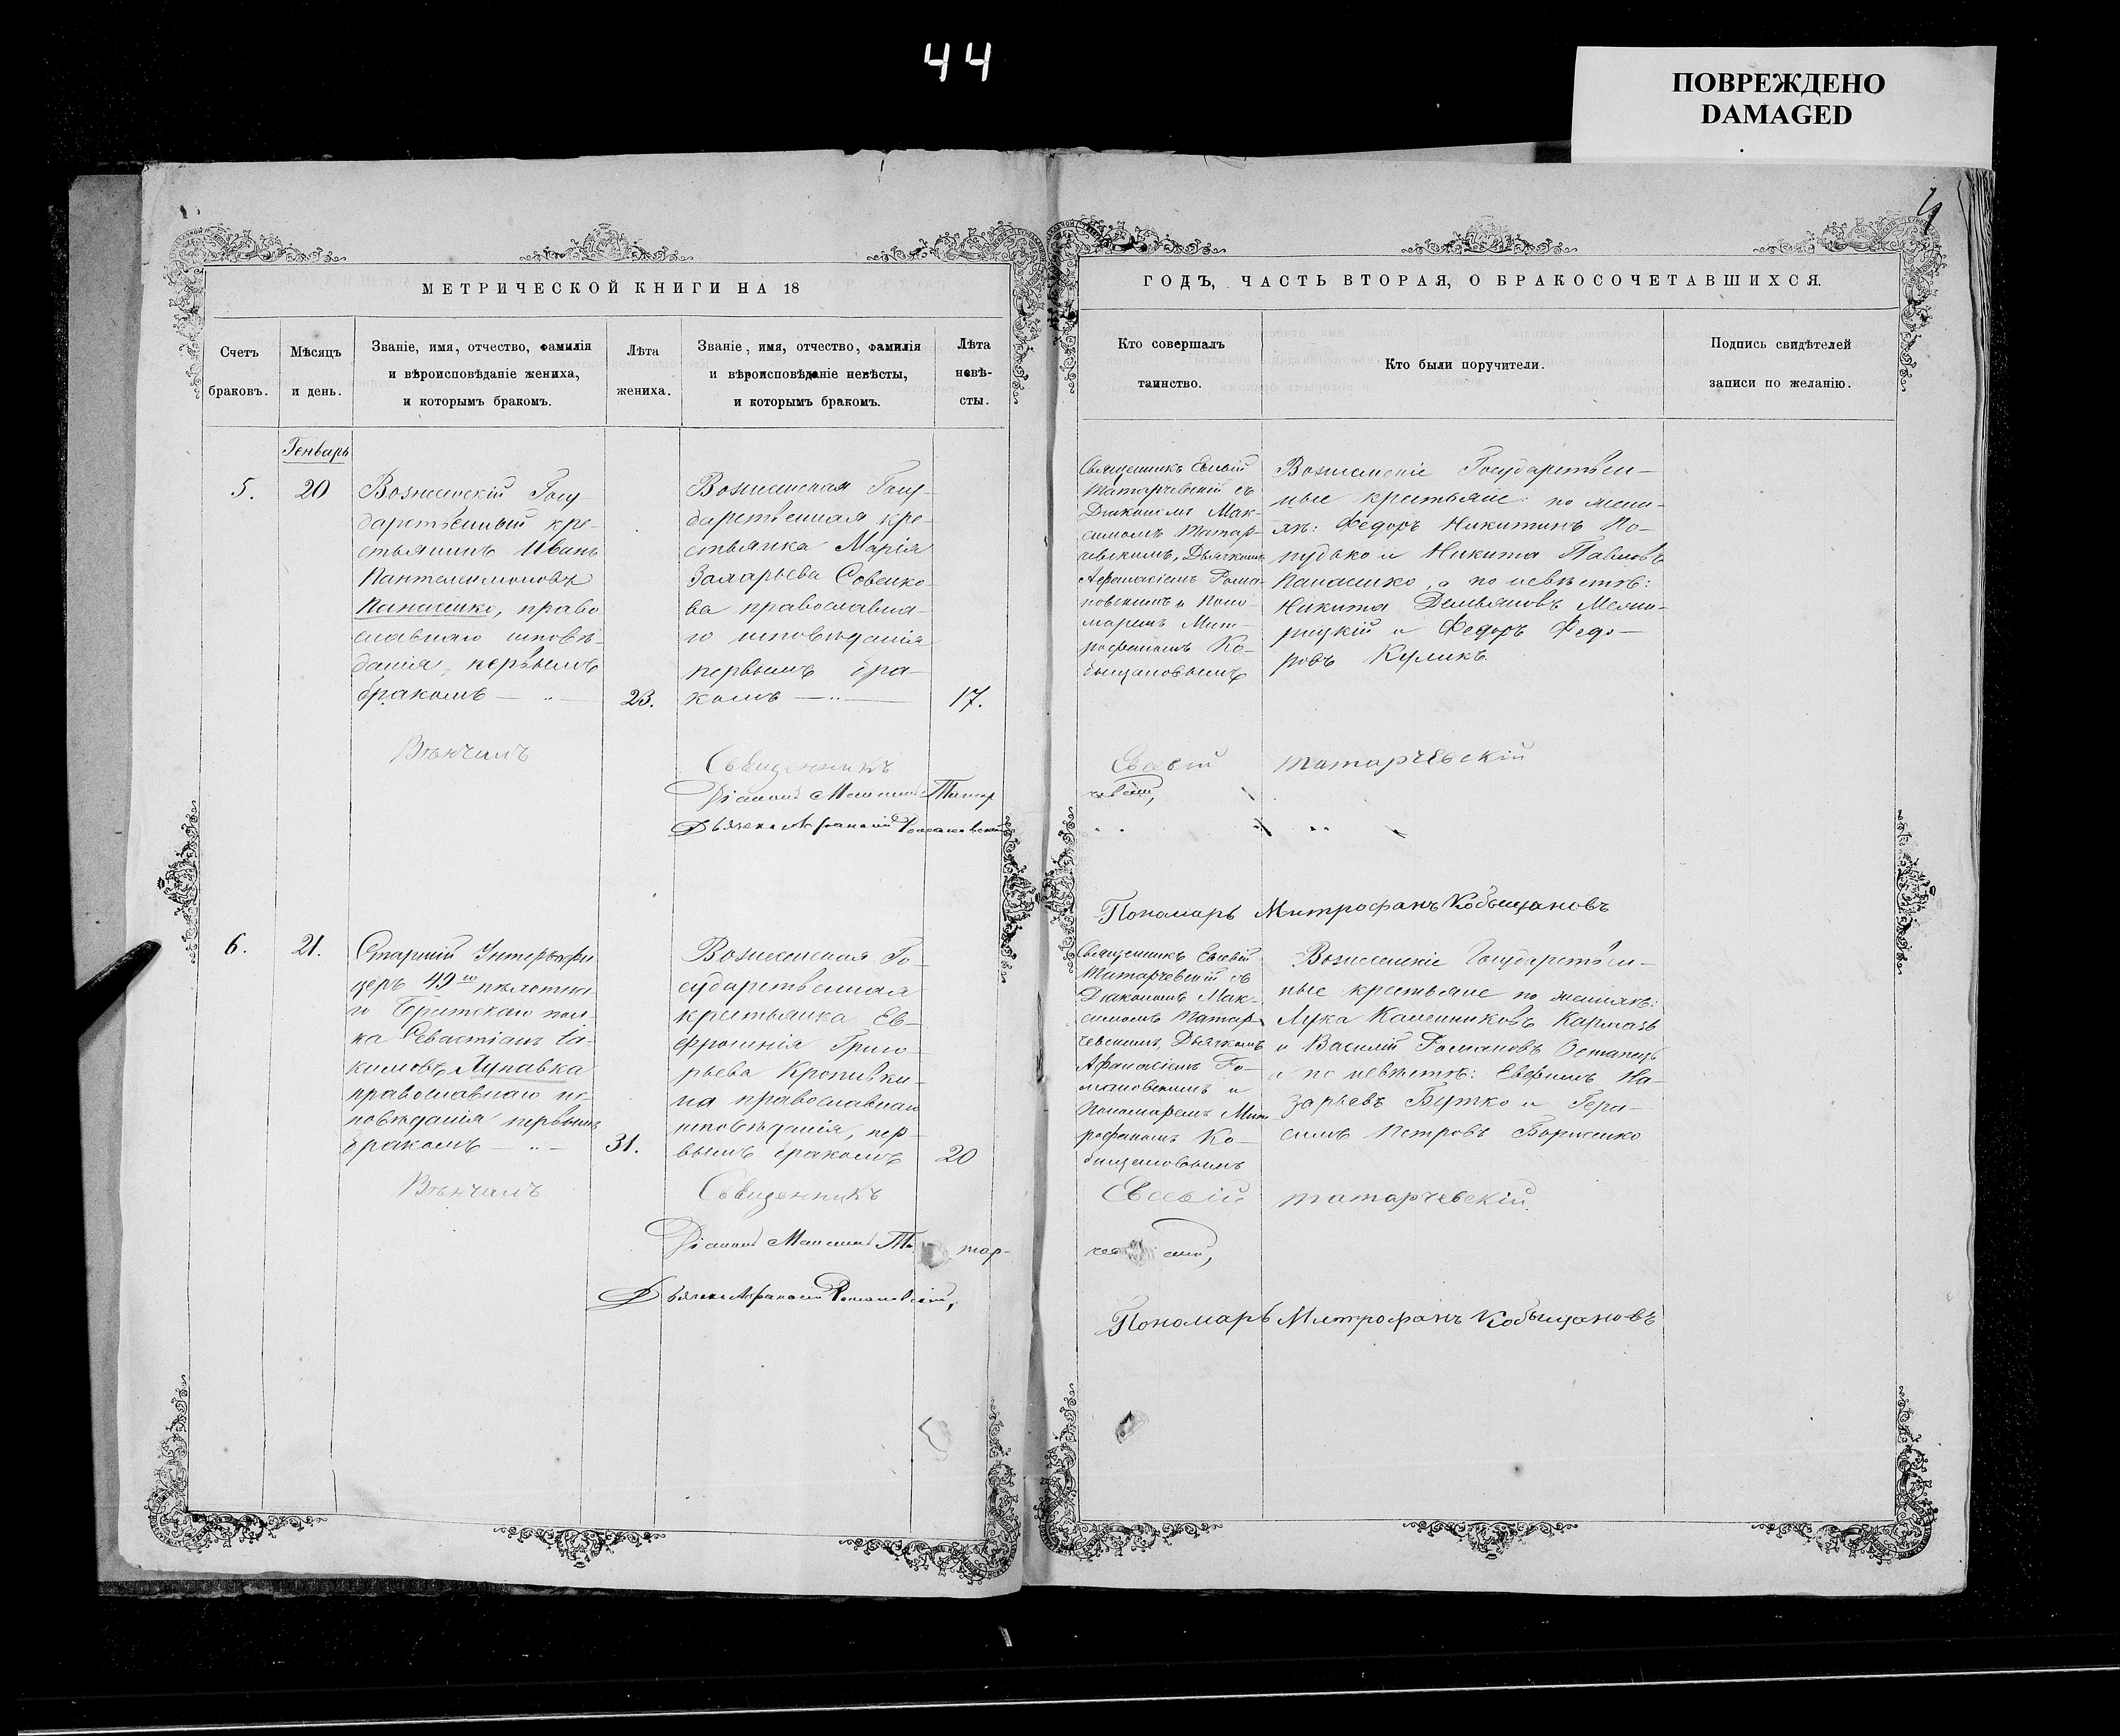 44
ПОВРЕЖДЕНО
DAMAGED
4
МЕТРИЧЕСКОЙ КНИГИ НА 18
Счетъ браковъ.
Мѣсяцъ и день.
Званіе, имя, отчество, фамилія
и вѣроисповѣданіе жениха,
и которымъ бракомъ.
Лѣта жениха.
Званіе, имя, отчество, фамилія
и вѣроисповѣданіе невѣсты,
и которымъ бракомъ.
Лѣта
невѣ-
сты.
Генварь
5.
20
Вознесенскій Госу-
дарственный кре-
стьянинъ Иванъ
Пантелеимоновъ
Панасенко, право
славнаго исповѣ-
данія, первымъ
бракомъ
23.
Вознесенская Госу-
дарственная кре-
стьянка Марія
Захарьева Совенко-
ва православна-
го исповѣданія
первымъ бра-
комъ
17.
Вѣнчалъ
Священникъ
Діаконъ Максимъ Татар
Дьячекъ Афанасій Романовскій
6.
21.
Старшій Унтеръ-офи
церъ 49го пѣхотна-
го Брестскаго пол-
ка Севастіанъ Іа-
кимовъ Лупавка
православнаго ис-
повѣданія первымъ
бракомъ
31.
Вознесенская Го-
сударственная
крестьянка Ев-
фросинія Григо-
рьева Кропивки-
на православнаго
исповѣданія, пер-
вымъ бракомъ
20
Вѣнчалъ
Священникъ
Діаконъ Максимъ Та тар-
Дьячекъ Афанасій Романовскій,
ГОДЪ, ЧАСТЬ ВТОРАЯ, О БРАКОСОЧЕТАВШИХСЯ.
Кто совершалъ
таинство.
Кто были поручители.
Подпись свидѣтелей
записи по желанію.
Священникъ Евсевій
Татарчевскій съ
Діакономъ Мак-
симомъ Татар-
чевскимъ, Дьячкомъ
Афанасіемъ Рома-
новскимъ и Поно-
маремъ Мит-
рофаномъ Ко-
быщановымъ
Вознесенскіе Государствен-
ные крестьяне: по жени-
хѣ: Федоръ Никитинъ По-
пудько и Никита Павловъ
Панасенко, а по невѣстѣ:
Никита Демьяновъ
и Федоръ Федо-
ровъ Куликъ.
Евсевій Татарчевскій
чевскій,
Пономарь Митрофанъ Кобыщановъ
Священникъ Евсевій
Татарчевскій съ
Діакономъ Мак-
симомъ Татар-
чевскимъ, Дьячкомъ
Афанасіемъ Ро-
мановскимъ и
Пономаремъ Мит
рофаномъ Ко-
бищановымъ
Вознесенскіе Государствен-
ные крестьяне по женихѣ:
Лука Калениковъ Кармазь
и Василій Романовъ Остапецъ
а по невѣстѣ: Евфимъ На-
зарьевъ Бутко и Гера-
симъ Петровъ Борисенко
Евсевій Татарчевскій.
чев скій,
Пономарь Митрофанъ Кобыщановъ